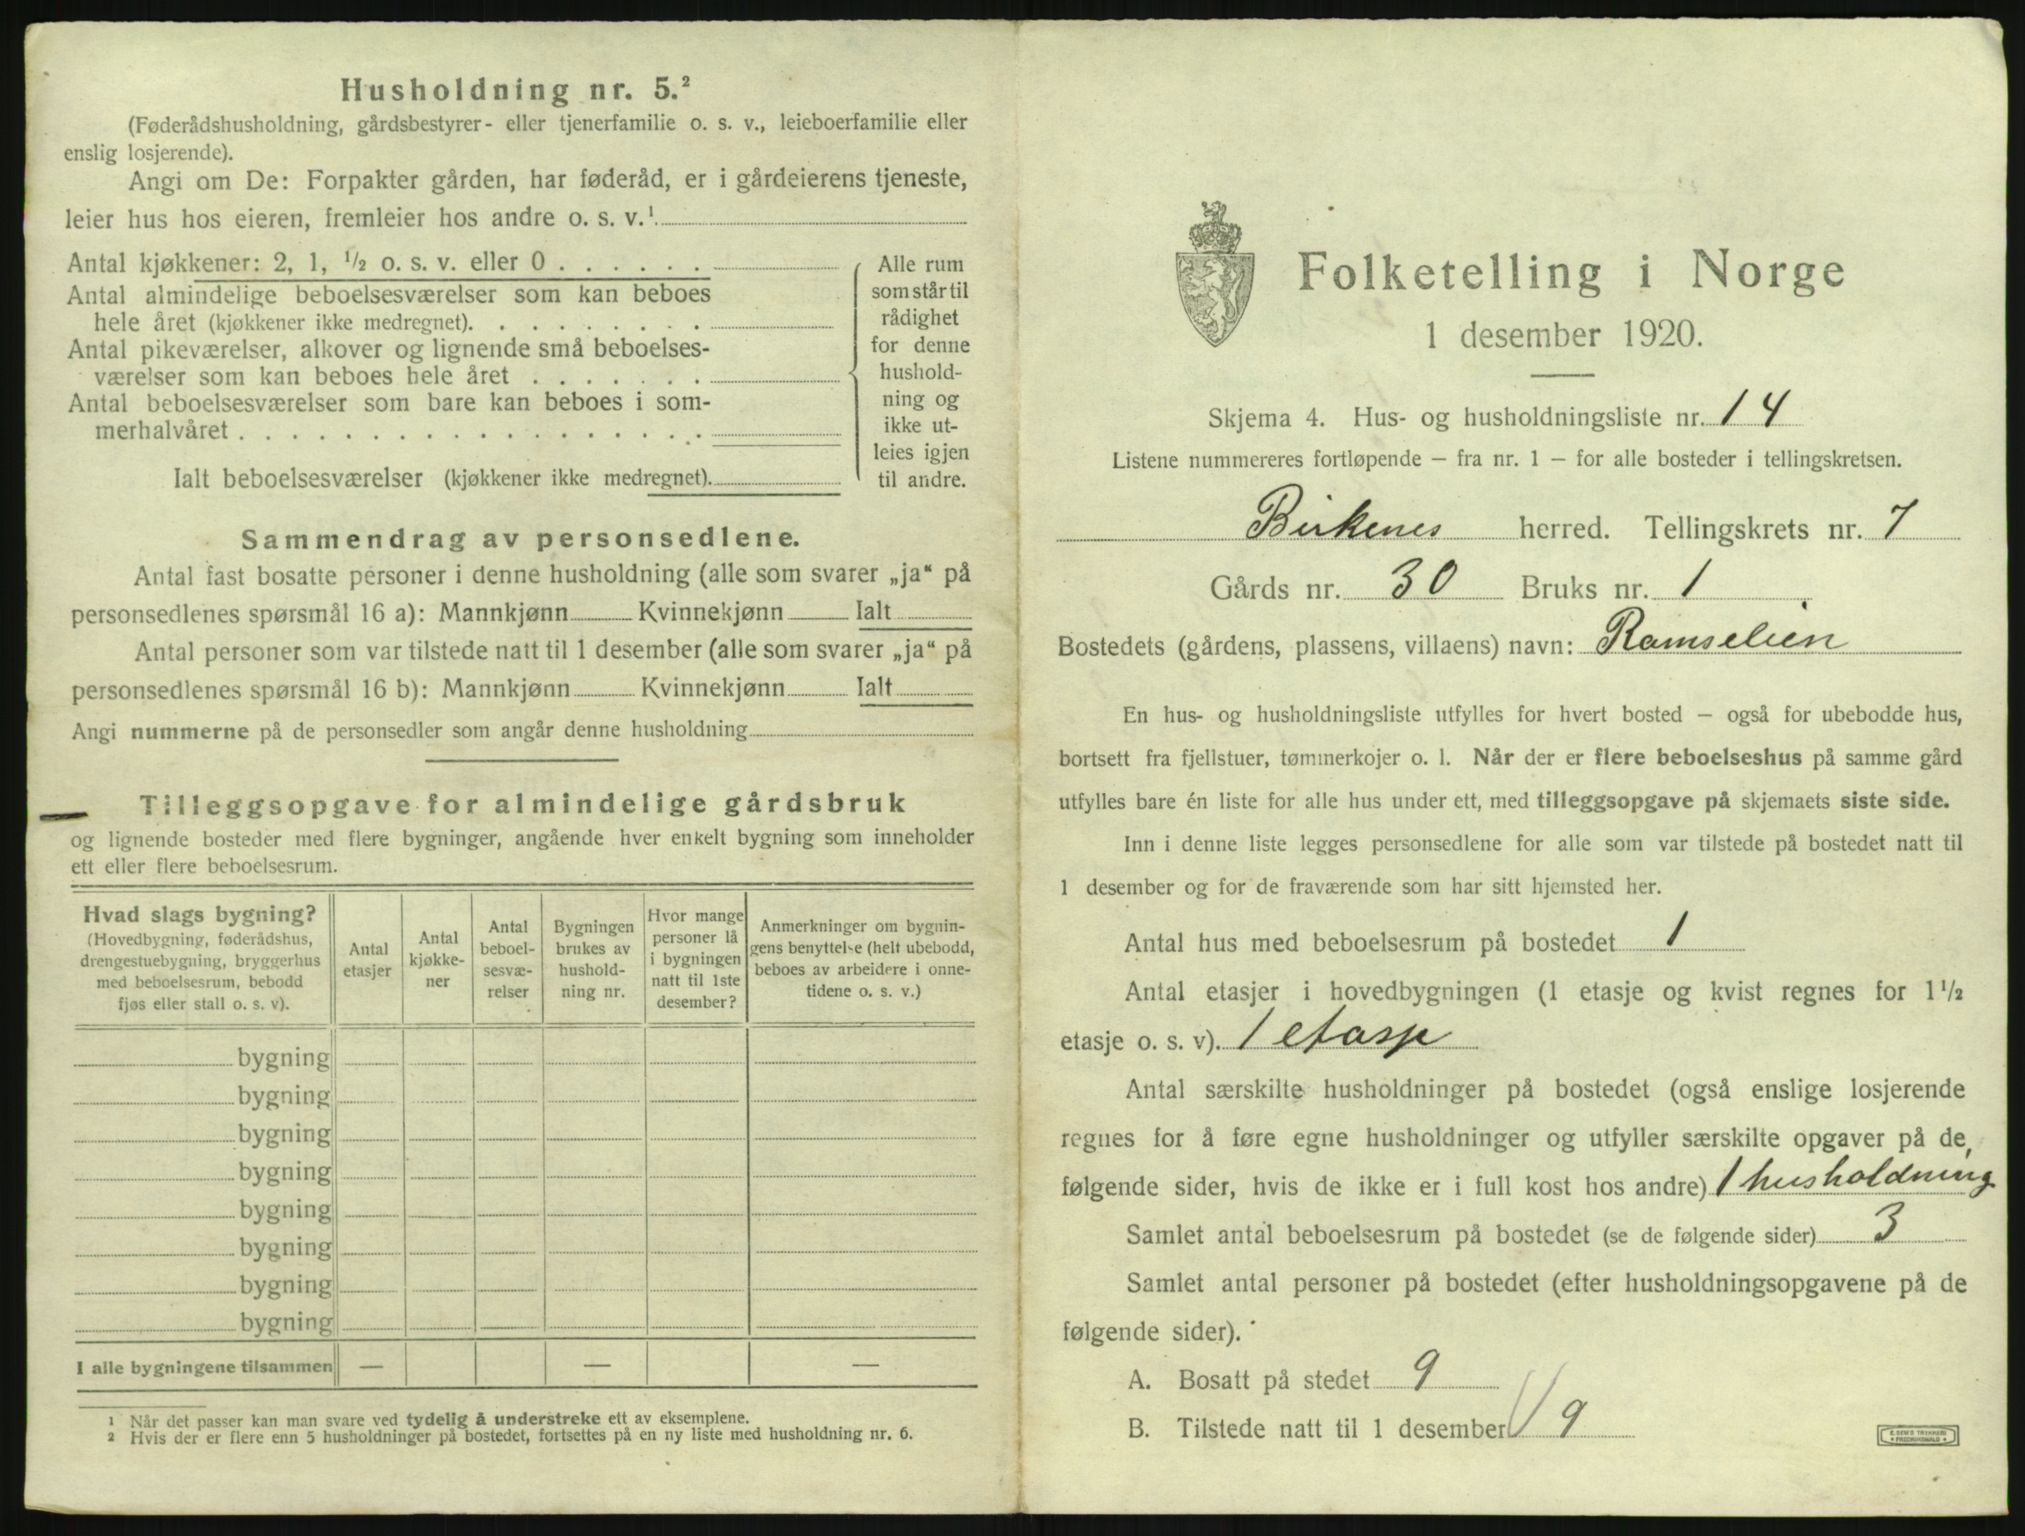 Husholdning nr. 5.²
(Føderådshusholdning, gårdsbestyrer- eller tjenerfamilie o. s. v., leieboerfamilie eller
enslig losjerende).
Angi om De: Forpakter gården, har føderåd, er i gårdeierens tjeneste,
leier hus hos eieren, fremleier hos andre o. s. v.¹
Antal kjøkkener: 2, 1, ½ o. s. v. eller 0 . . . . . .
Antal almindelige beboelsesværelser som kan beboes
hele året (kjøkkener ikke medregnet). . . . . . . . .
Antal pikeværelser, alkover og lignende små beboelses-
værelser som kan beboes hele året . . . . . . .
Antal beboelsesværelser som bare kan beboes i som-
merhalvåret . . . . . . . . . . . . . . . . . .
Ialt beboelsesværelser (kjøkkener ikke medregnet).
Alle rum
som står til
rådighet
for denne
hushold-
ning og
ikke ut-
leies igjen
til andre.
Sammendrag av personsedlene.
Antal fast bosatte personer i denne husholdning (alle som svarer „ja“ på
personsedlenes spørsmål 16 a): Mannkjønn Kvinnekjønn Ialt
Antal personer som var tilstede natt til 1 desember (alle som svarer „ja“ på
personsedlenes spørsmål 16 b): Mannkjønn Kvinnekjønn Ialt
Angi nummerne på de personsedler som angår denne husholdning
Tilleggsopgave for almindelige gårdsbruk
og lignende bosteder med flere bygninger, angående hver enkelt bygning som inneholder
ett eller flere beboelsesrum.
Hvad slags bygning?
(Hovedbygning, føderådshus,
drengestuebygning, bryggerhus
med beboelsesrum, bebodd
fjøs eller stall o. s. v).
Antal
etasjer
Antal
kjøkke-
ner
Antal
beboel-
sesvæ-
relser
Bygningen
brukes av
hushold-
ning nr.
Hvor mange
personer lå
i bygningen
natt til 1ste
desember?
Anmerkninger om bygnin-
gens benyttelse (helt ubebodd,
beboes av arbeidere i onne-
tidene o. s. v.)
bygning
bygning
bygning
bygning
bygning
bygning
bygning
bygning
I alle bygningene tilsammen — — —
¹ Når det passer kan man svare ved tydelig å understreke ett av eksemplene.
² Hvis der er flere enn 5 husholdninger på bostedet, fortsettes på en ny liste med husholdning nr. 6.
Folketelling i Norge
1 desember 1920.
Skjema 4. Hus- og husholdningsliste nr. 14
Listene nummereres fortløpende – fra nr. 1 – for alle bosteder i tellingskretsen.
Birkenes herred. Tellingskrets nr. 7
Gårds nr. 30 Bruks nr. 1
Bostedets (gårdens, plassens, villaens) navn: Ramselien
En hus- og husholdningsliste utfylles for hvert bosted – også for ubebodde hus,
bortsett fra fjellstuer, tømmerkojer o. l. Når der er flere beboelseshus på samme gård
utfylles bare én liste for alle hus under ett, med tilleggsopgave på skjemaets siste side.
Inn i denne liste legges personsedlene for alle som var tilstede på bostedet natt til
1 desember og for de fraværende som har sitt hjemsted her.
Antal hus med beboelsesrum på bostedet 1
Antal etasjer i hovedbygningen (1 etasje og kvist regnes for 1½
etasje o. s. v). 1 etasje
Antal særskilte husholdninger på bostedet (også enslige losjerende
regnes for å føre egne husholdninger og utfyller særskilte opgaver på de
følgende sider, hvis de ikke er i full kost hos andre) 1 husholdning
Samlet antal beboelsesrum på bostedet (se de følgende sider) 3
Samlet antal personer på bostedet (efter husholdningsopgavene på de
følgende sider).
A. Bosatt på stedet 9
B. Tilstede natt til 1 desember 9